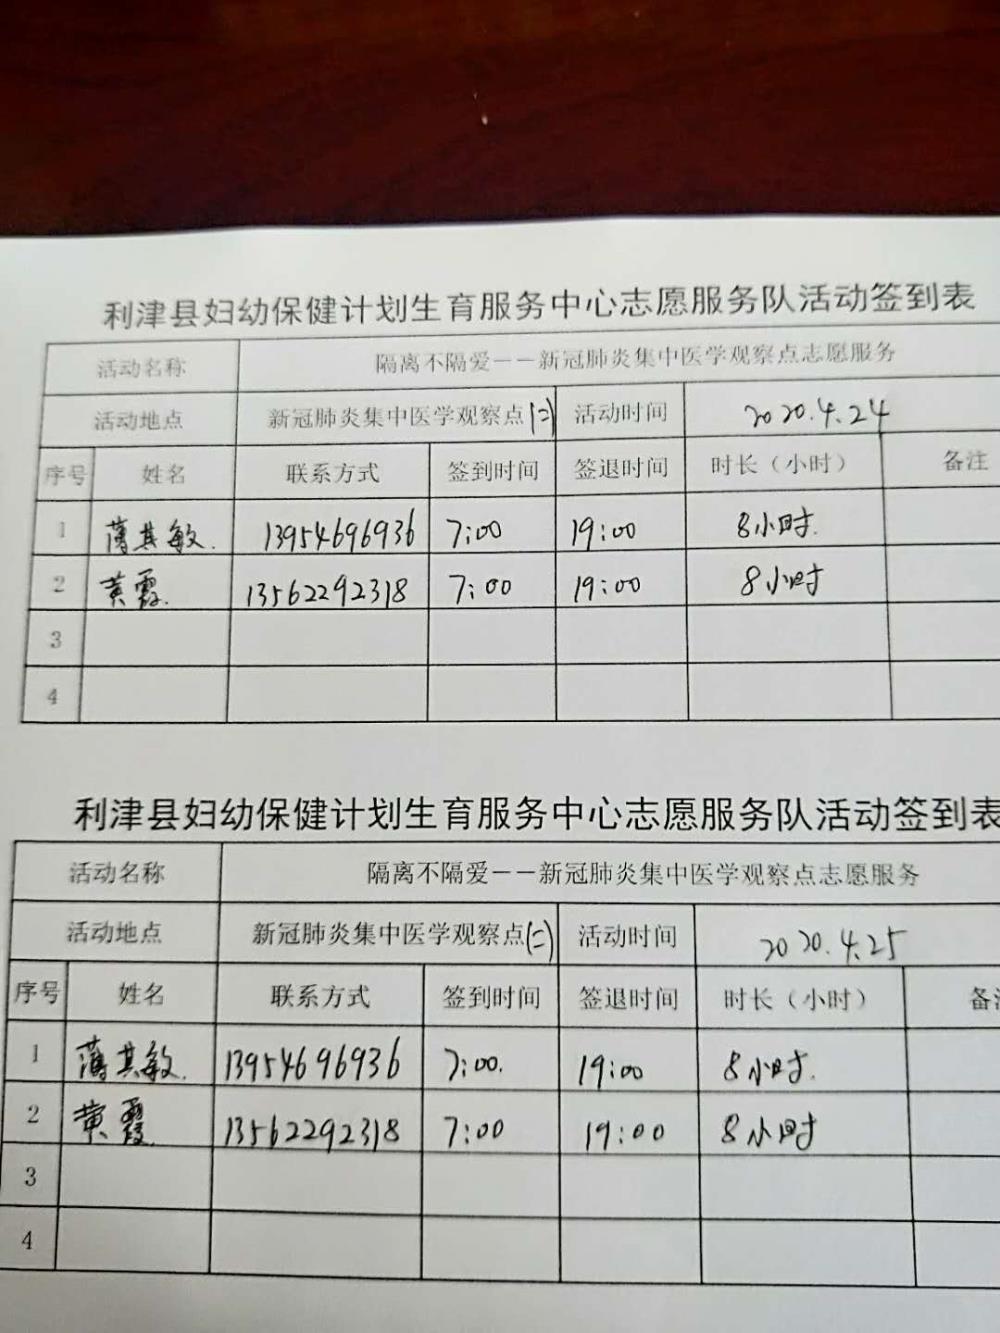 利津县妇幼保健计划生育服务中心志愿服务队活动签到表
活动名称 隔离不隔爱——新冠肺炎集中医学观察点志愿服务
活动地点 新冠肺炎集中医学观察点(二) 活动时间 2020.4.24
序号 姓名 联系方式 签到时间 签退时间 时长（小时） 备注
1 薄其敏. 13954696936 7:00 19:00 8小时.
2 黄霞. 13562292318 7:00 19:00 8小时
3
4
利津县妇幼保健计划生育服务中心志愿服务队活动签到表
活动名称 隔离不隔爱——新冠肺炎集中医学观察点志愿服务
活动地点 新冠肺炎集中医学观察点(二) 活动时间 2020.4.25
序号 姓名 联系方式 签到时间 签退时间 时长（小时） 备注
1 薄其敏. 13954696936 7:00. 19:00 8小时.
2 黄霞. 13562292318 7:00 19:00 8小时
3
4